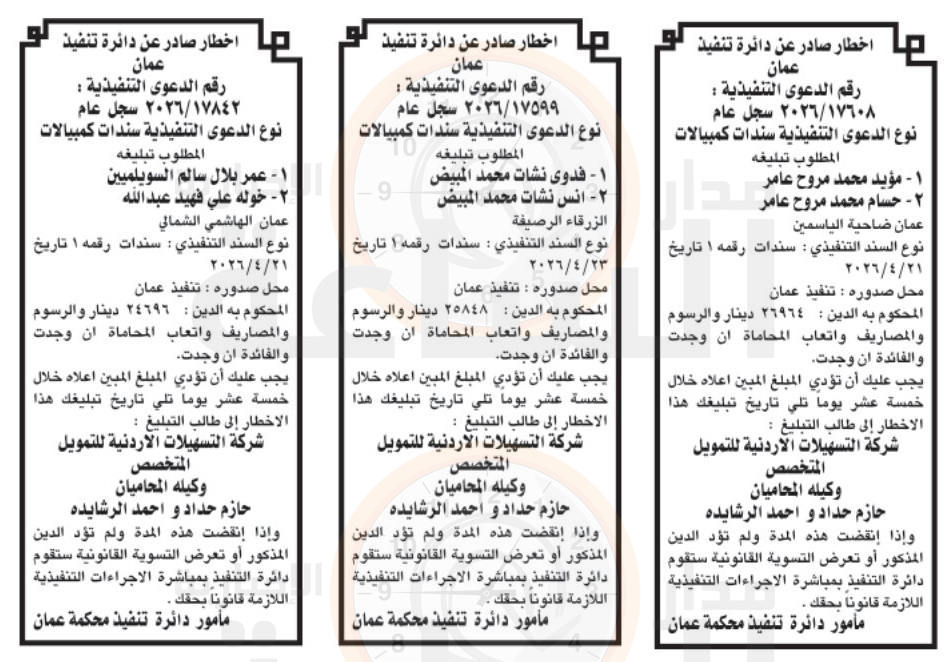 اخطار صادر عن دائرة تنفيذ
عمان
رقم الدعوى التنفيذية :
٢٠٢٦/١٧٦٠٨ سجل عام
نوع الدعوى التنفيذية سندات كمبيالات
المطلوب تبليغه
١- مؤيد محمد مروح عامر
٢- حسام محمد مروح عامر
عمان ضاحية الياسمين
نوع السند التنفيذي : سندات رقمه ١ تاريخ
٢٠٢٦/٤/٢١
محل صدوره : تنفيذ عمان
المحكوم به الدين : ٢٦٩٦٤ دينار والرسوم
والمصاريف واتعاب المحاماة ان وجدت
والفائدة ان وجدت.
يجب عليك أن تؤدي المبلغ المبين اعلاه خلال
خمسة عشر يوماً تلي تاريخ تبليغك هذا
الاخطار إلى طالب التبليغ :
شركة التسهيلات الاردنية للتمويل
المتخصص
وكيله المحاميان
حازم حداد و احمد الرشايده
وإذا إنقضت هذه المدة ولم تؤد الدين
المذكور أو تعرض التسوية القانونية ستقوم
دائرة التنفيذ بمباشرة الاجراءات التنفيذية
اللازمة قانوناً بحقك .
مأمور دائرة تنفيذ محكمة عمان
اخطار صادر عن دائرة تنفيذ
عمان
رقم الدعوى التنفيذية :
٢٠٢٦/١٧٥٩٩ سجل عام
نوع الدعوى التنفيذية سندات كمبيالات
المطلوب تبليغه
١- فدوى نشات محمد المبيض
٢- انس نشات محمد المبيض
الزرقاء الرصيفة
نوع السند التنفيذي : سندات رقمه ١ تاريخ
٢٠٢٦/٤/٢٣
محل صدوره : تنفيذ عمان
المحكوم به الدين : ٢٥٨٤٨ دينار والرسوم
والمصاريف واتعاب المحاماة ان وجدت
والفائدة ان وجدت.
يجب عليك أن تؤدي المبلغ المبين اعلاه خلال
خمسة عشر يوماً تلي تاريخ تبليغك هذا
الاخطار إلى طالب التبليغ :
شركة التسهيلات الاردنية للتمويل
المتخصص
وكيله المحاميان
حازم حداد و احمد الرشايده
وإذا إنقضت هذه المدة ولم تؤد الدين
المذكور أو تعرض التسوية القانونية ستقوم
دائرة التنفيذ بمباشرة الاجراءات التنفيذية
اللازمة قانوناً بحقك .
مأمور دائرة تنفيذ محكمة عمان
اخطار صادر عن دائرة تنفيذ
عمان
رقم الدعوى التنفيذية :
٢٠٢٦/١٧٨٤٢ سجل عام
نوع الدعوى التنفيذية سندات كمبيالات
المطلوب تبليغه
١- عمر بلال سالم السويلميين
٢- خوله علي فهيد عبدالله
عمان الهاشمي الشمالي
نوع السند التنفيذي : سندات رقمه ١ تاريخ
٢٠٢٦/٤/٢١
محل صدوره : تنفيذ عمان
المحكوم به الدين : ٢٤٦٩٦ دينار والرسوم
والمصاريف واتعاب المحاماة ان وجدت
والفائدة ان وجدت.
يجب عليك أن تؤدي المبلغ المبين اعلاه خلال
خمسة عشر يوماً تلي تاريخ تبليغك هذا
الاخطار إلى طالب التبليغ :
شركة التسهيلات الاردنية للتمويل
المتخصص
وكيله المحاميان
حازم حداد و احمد الرشايده
وإذا إنقضت هذه المدة ولم تؤد الدين
المذكور أو تعرض التسوية القانونية ستقوم
دائرة التنفيذ بمباشرة الاجراءات التنفيذية
اللازمة قانوناً بحقك .
مأمور دائرة تنفيذ محكمة عمان